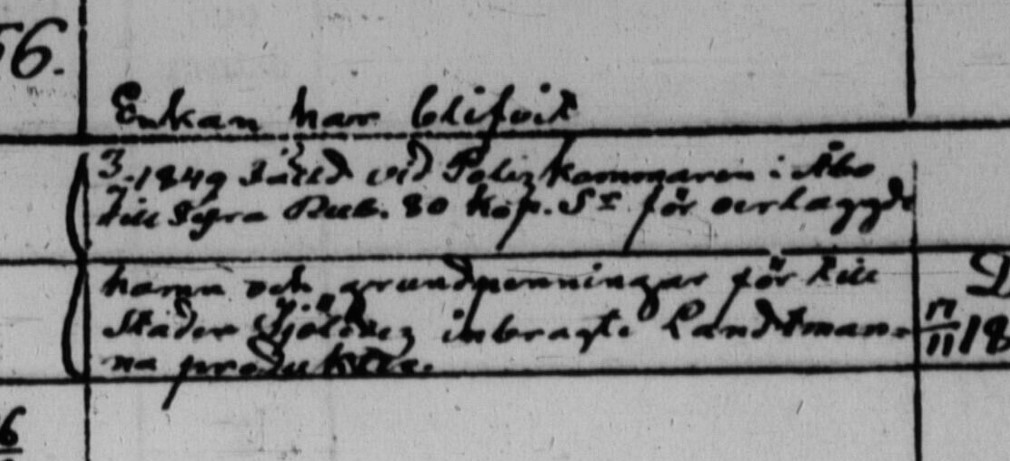 56.
Enkan har blifvit
3/7 1849 fälld vid Poliskammaren i Åbo
till 8 gra Rub. 80 Kop. Sr för oerlaggde
hamn och grundpenningar för till
Staden Sjöledes inbragte Landtman-
na produkter.
17/11 18
6